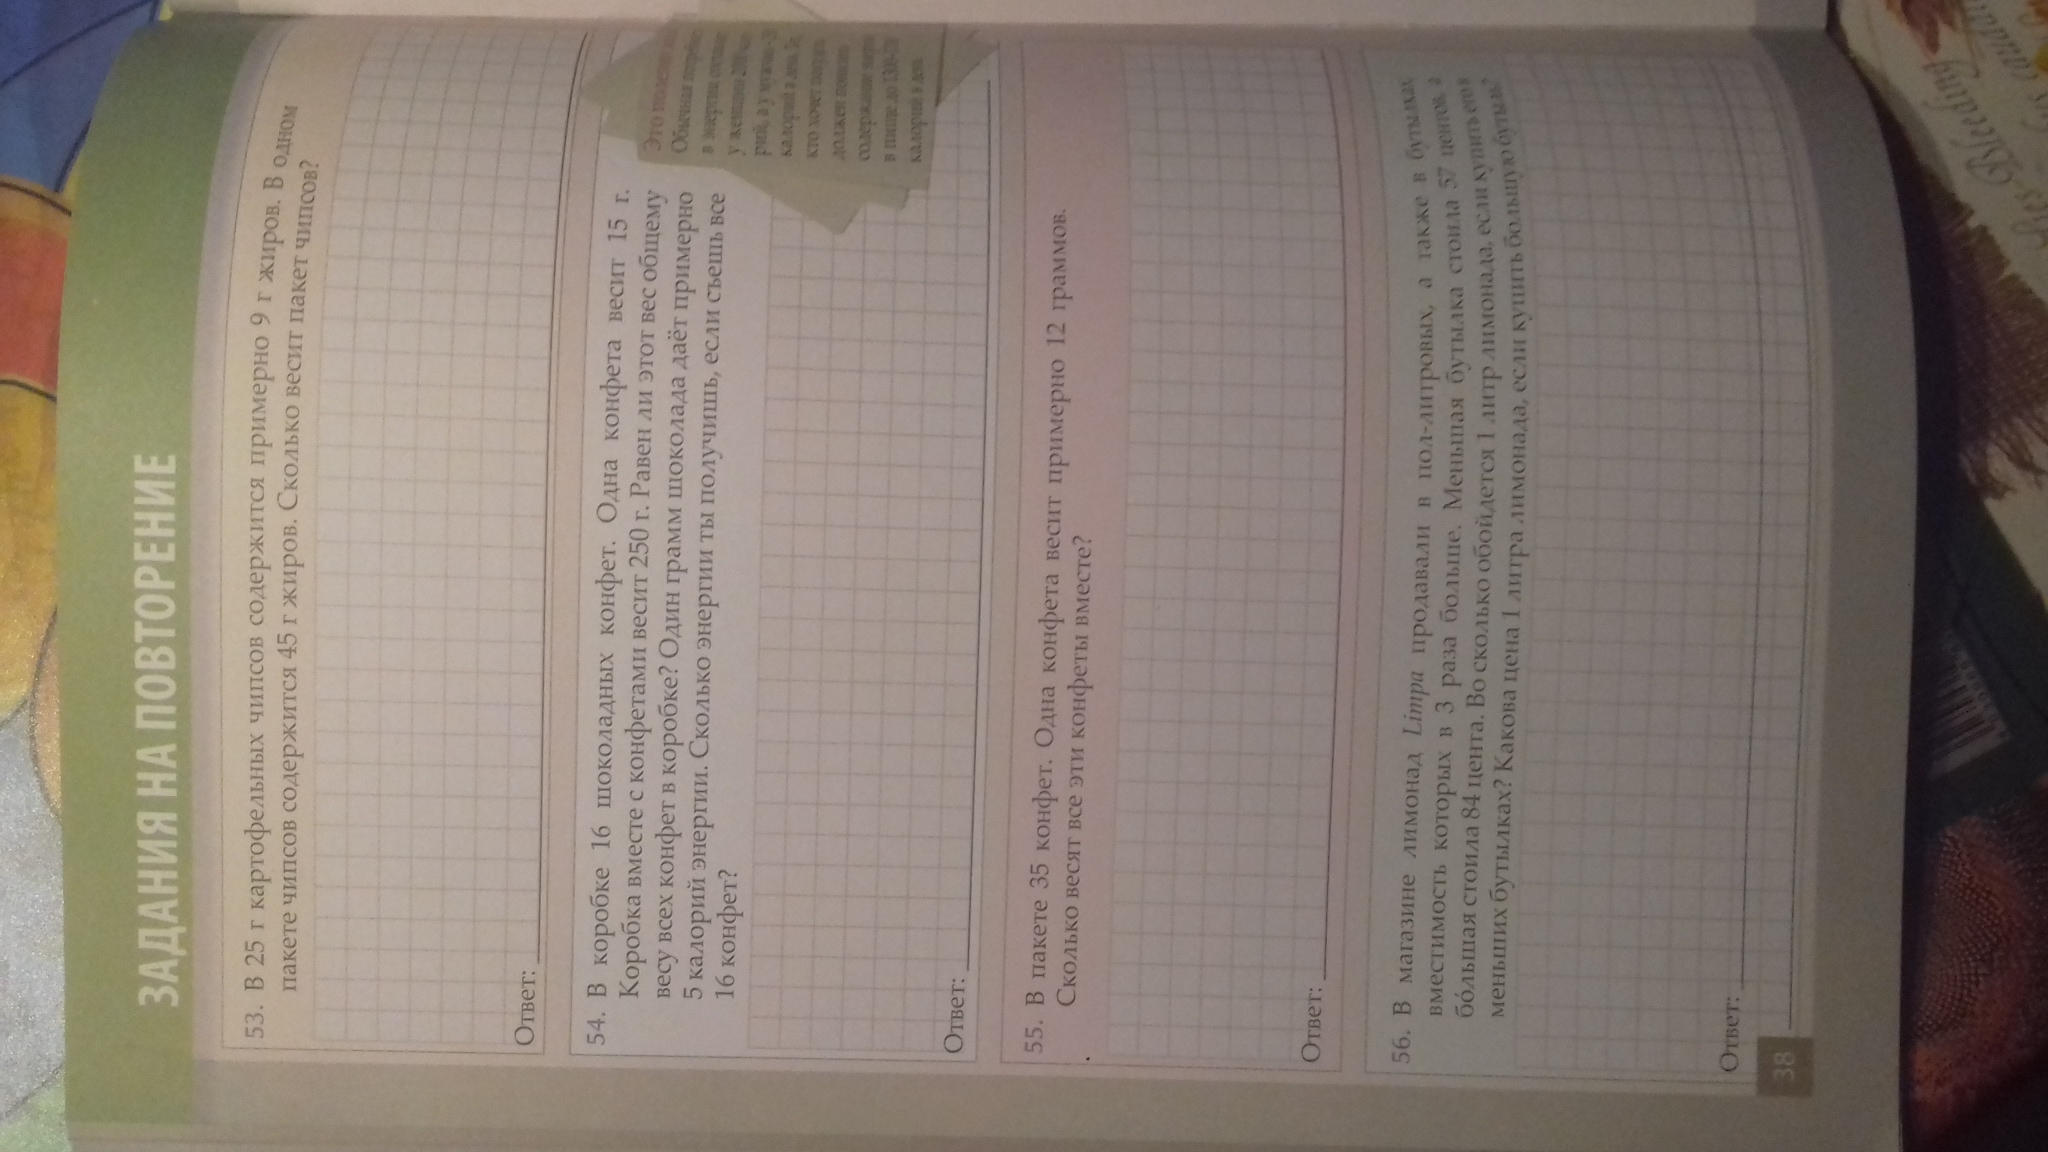 ЗАДАНИЯ НА ПОВТОРЕНИЕ
53. В 25 г картофельных чипсов содержится примерно 9 г жиров. В одном
пакете чипсов содержится 45 г жиров. Сколько весит пакет чипсов?
Ответ:
54. В коробке 16 шоколадных конфет. Одна конфета весит 15 г.
Коробка вместе с конфетами весит 250 г. Равен ли этот вес общему
весу всех конфет в коробке? Один грамм шоколада даёт примерно
5 калорий энергии. Сколько энергии ты получишь, если съешь все
16 конфет?
Это полезно
Обычная
в энергии
у женщин
рий, а у мужчин
калорий в день.
кто хочет
должен
содержание
в пище до
калорий в день
Ответ:
55. В пакете 35 конфет. Одна конфета весит примерно 12 граммов.
Сколько весят все эти конфеты вместе?
Ответ:
56. В магазине лимонад Limpa продавали в пол-литровых, а также в бутылках,
вместимость которых в 3 раза больше. Меньшая бутылка стоила 57 центов, а
бо́льшая стоила 84 цента. Во сколько обойдется 1 литр лимонада, если купить его в
меньших бутылках? Какова цена 1 литра лимонада, если купить большую бутыль?
Ответ:
38
Bleeding